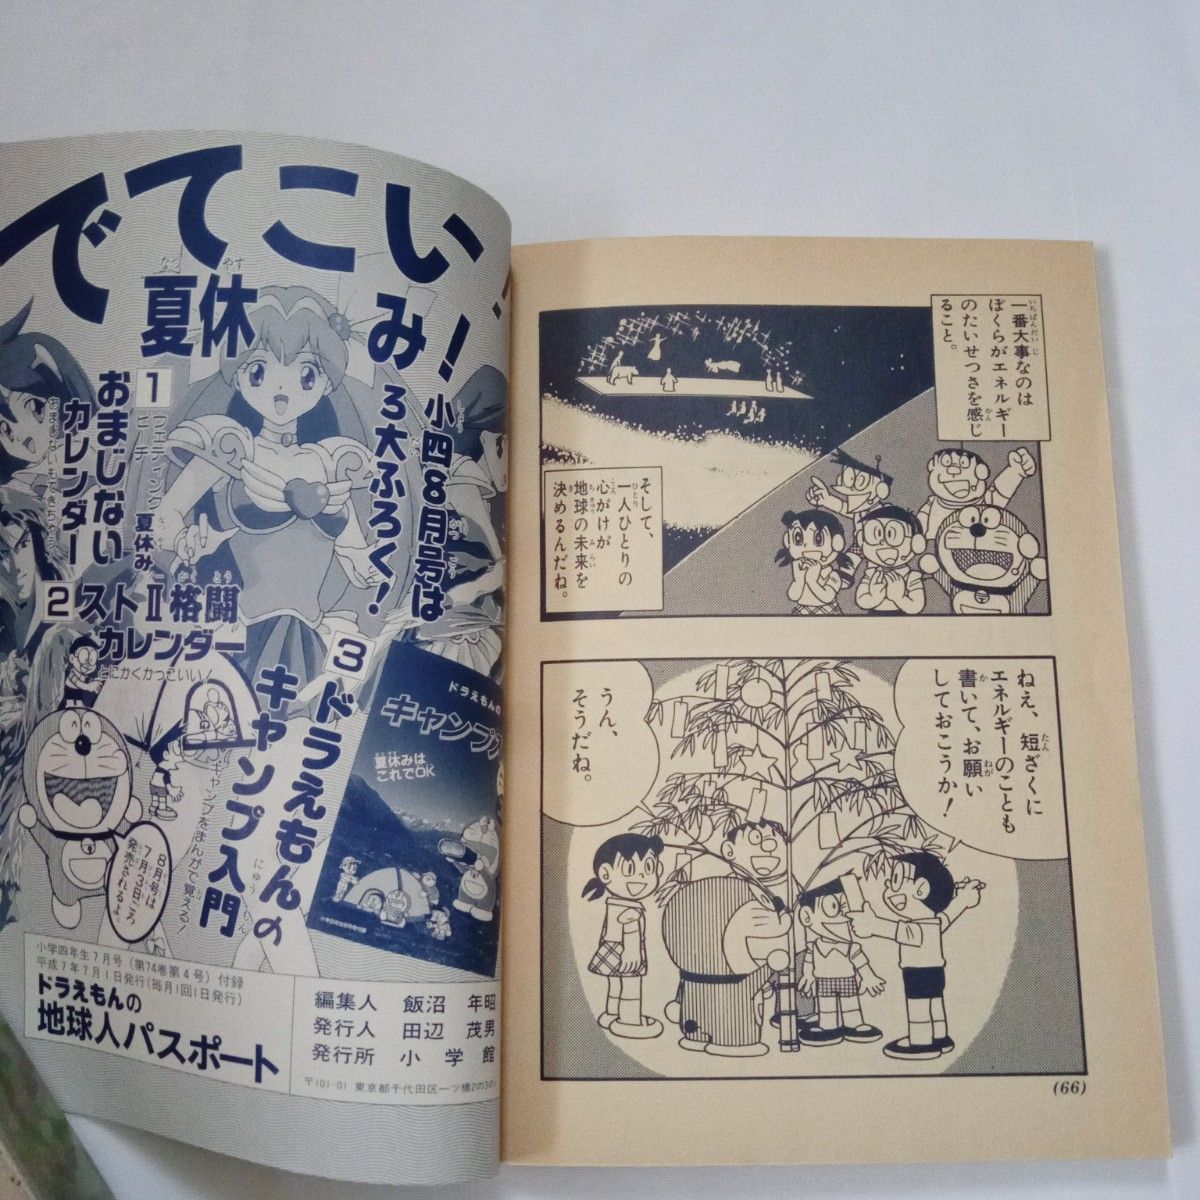 でてこい!
夏休み!
なつ やす
小四8月号は
3大ふろく!
1
ウエディング
ピーチ
夏休み
おまじない
カレンダー
2 ストⅡ格闘
カレンダー
とにかくかっこいい!
3 ドラえもんの
キャンプ入門
キャンプをまんがで覚える!
ドラえもんの
キャンプ入
夏休みは
これでOK
8月号は
7月3日ごろ
発売されるよ。
小学四年生7月号(第74巻第4号)付録
平成7年7月1日発行(毎月1回1日発行)
ドラえもんの
地球人パスポート
編集人 飯沼 年昭
発行人 田辺 茂男
発行所 小学館
〒101-01 東京都千代田区一ツ橋2の3の
一番大事なのは
いちばんだいじ
ぼくらがエネルギー
のたいせつさを感じ
かん
ること。
そして、
一人ひとりの
ひとり
心がけが
こころ
地球の未来を
ちきゅう みらい
決めるんだね。
き
ねえ、短ざくに
たん
エネルギーのことも
書いて、お願い
か ねが
しておこうか!
うん、
そうだね。
(66)